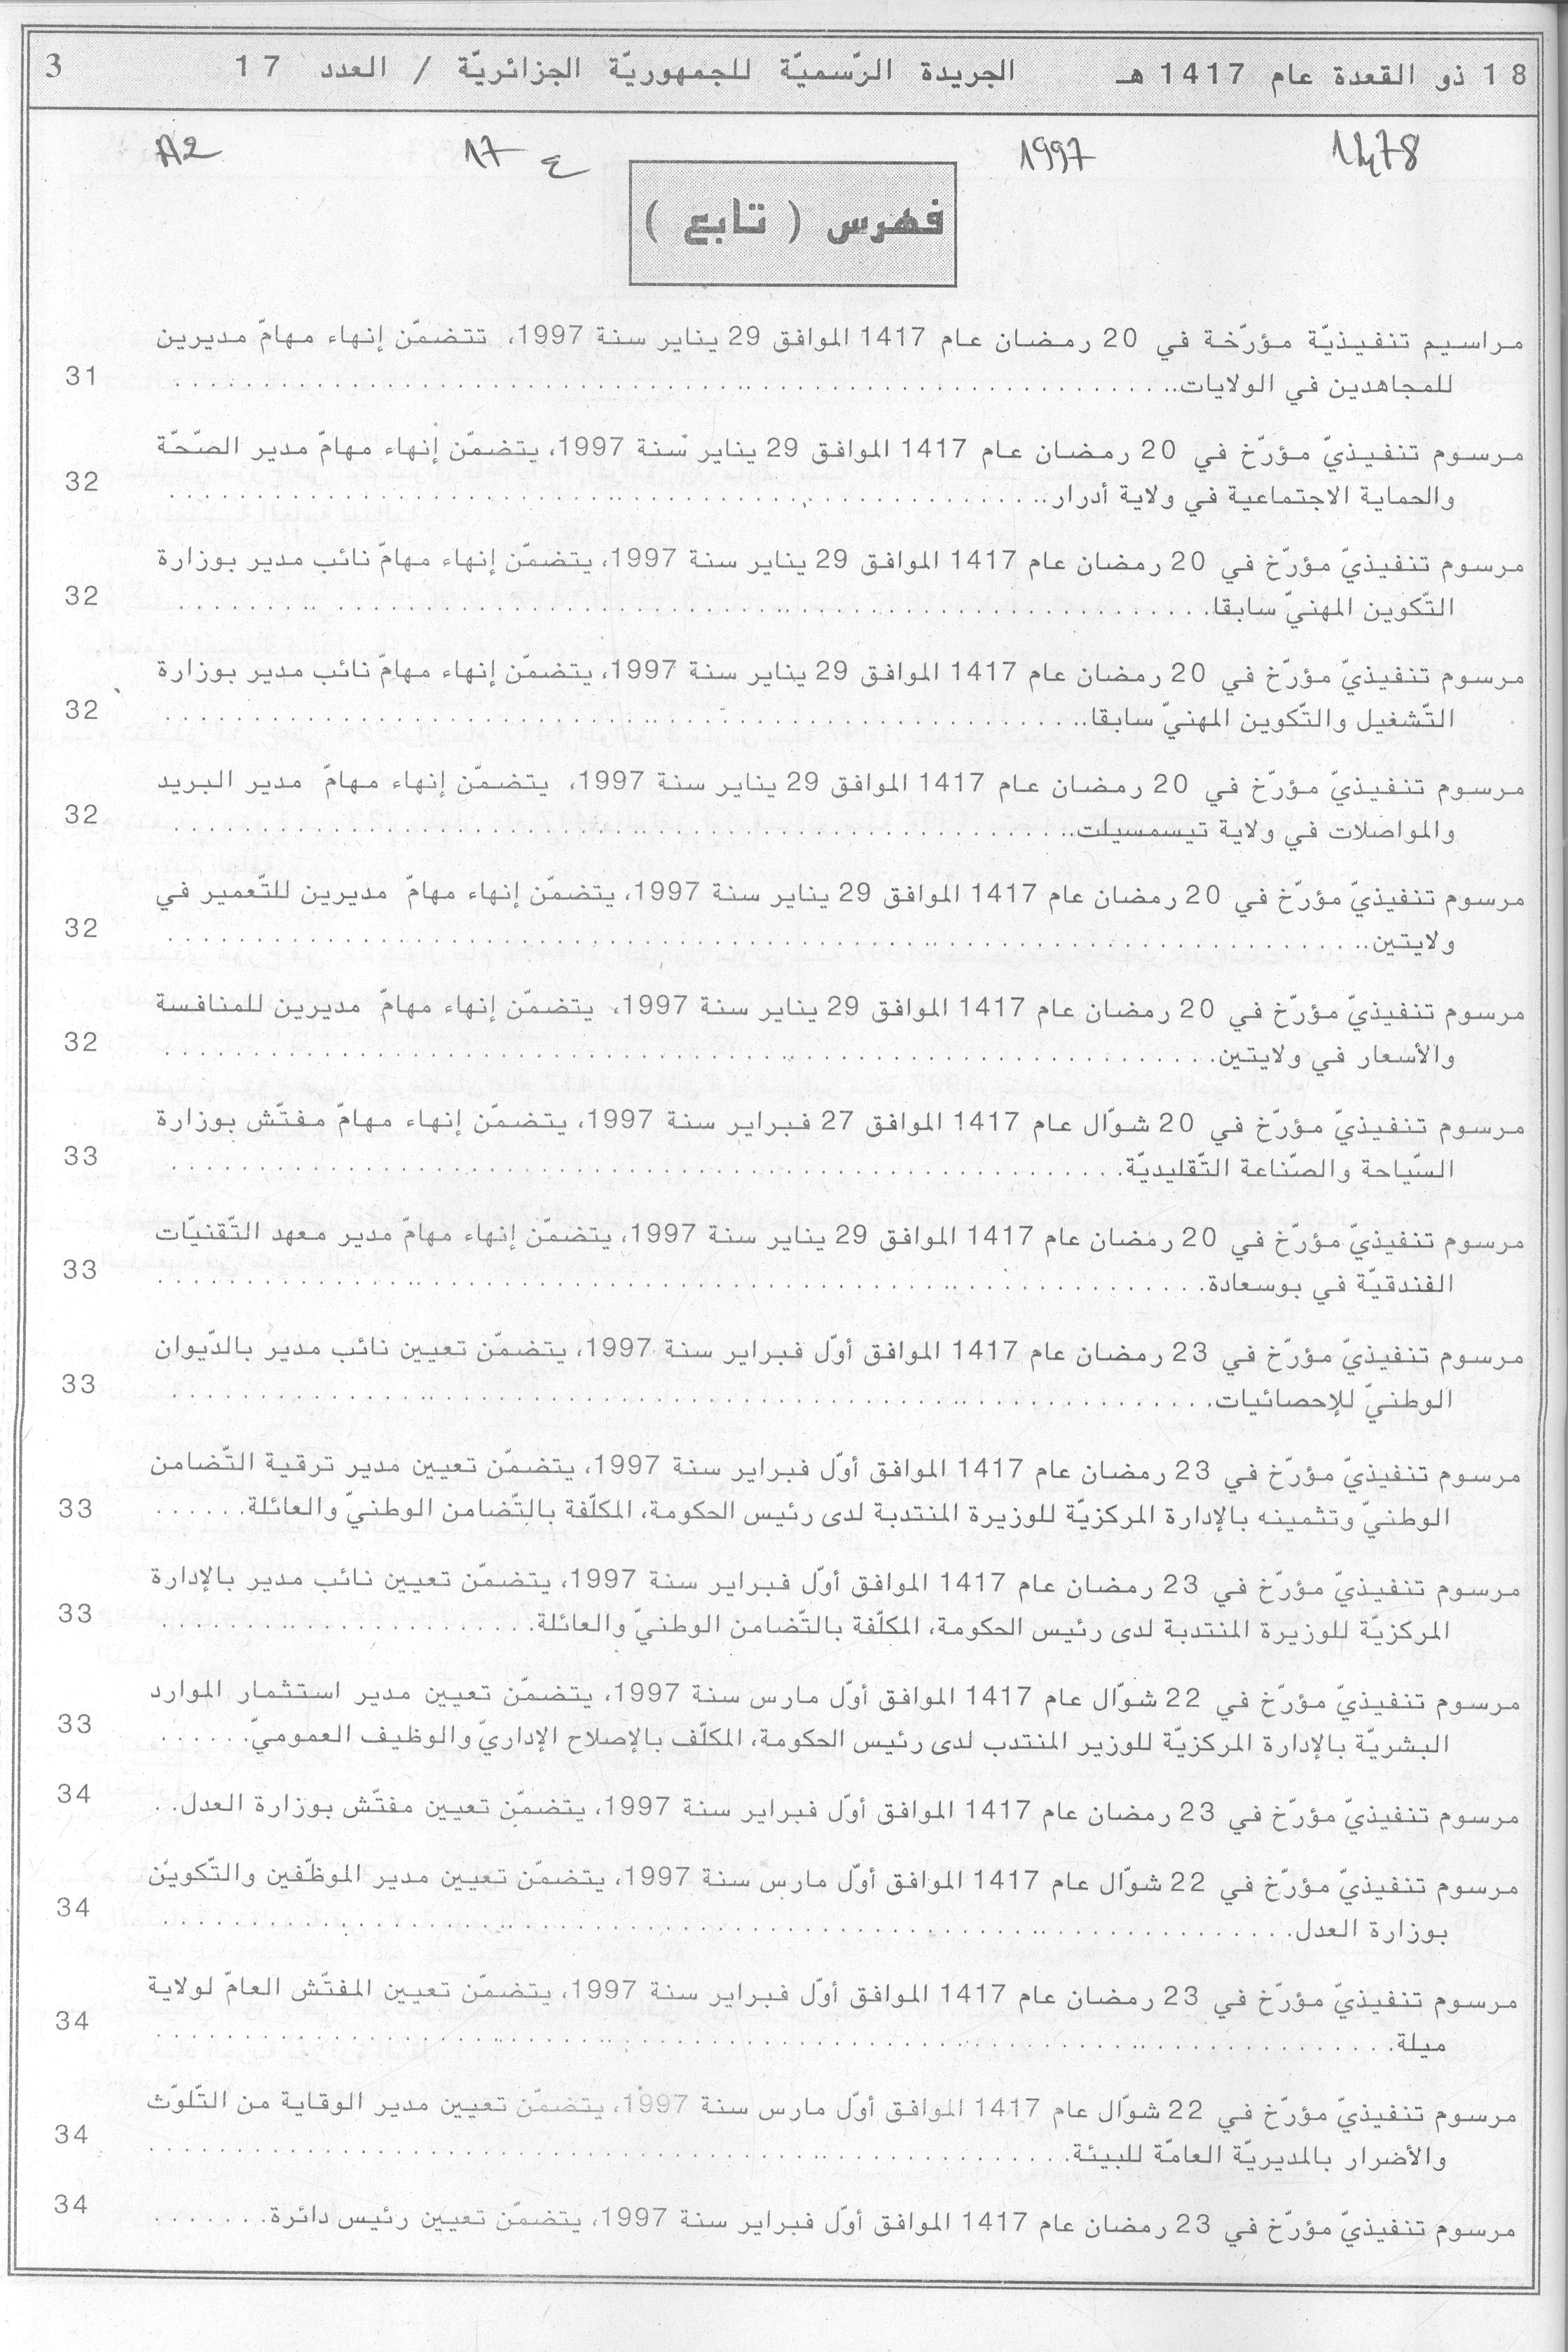 18 ذو القعدة عام 1417 هـ الجريدة الرّسميّة للجمهوريّة الجزائريّة / العدد 17 3
1478 1997 ع 17 A2
فهرس ( تابع )
مراسيم تنفيذيّة مؤرّخة في 20 رمضان عام 1417 الموافق 29 يناير سنة 1997، تتضمّن إنهاء مهامّ مديرين
للمجاهدين في الولايات.......... 31
مرسوم تنفيذيّ مؤرّخ في 20 رمضان عام 1417 الموافق 29 يناير سنة 1997، يتضمّن إنهاء مهامّ مدير الصّحّة
والحماية الاجتماعية في ولاية أدرار.......... 32
مرسوم تنفيذيّ مؤرّخ في 20 رمضان عام 1417 الموافق 29 يناير سنة 1997، يتضمّن إنهاء مهامّ نائب مدير بوزارة
التّكوين المهنيّ سابقا.......... 32
مرسوم تنفيذيّ مؤرّخ في 20 رمضان عام 1417 الموافق 29 يناير سنة 1997، يتضمّن إنهاء مهامّ نائب مدير بوزارة
التّشغيل والتّكوين المهنيّ سابقا.......... 32
مرسوم تنفيذيّ مؤرّخ في 20 رمضان عام 1417 الموافق 29 يناير سنة 1997، يتضمّن إنهاء مهامّ مدير البريد
والمواصلات في ولاية تيسمسيلت.......... 32
مرسوم تنفيذيّ مؤرّخ في 20 رمضان عام 1417 الموافق 29 يناير سنة 1997، يتضمّن إنهاء مهامّ مديرين للتّعمير في
ولايتين.......... 32
مرسوم تنفيذيّ مؤرّخ في 20 رمضان عام 1417 الموافق 29 يناير سنة 1997، يتضمّن إنهاء مهامّ مديرين للمنافسة
والأسعار في ولايتين.......... 32
مرسوم تنفيذيّ مؤرّخ في 20 شوّال عام 1417 الموافق 27 فبراير سنة 1997، يتضمّن إنهاء مهامّ مفتّش بوزارة
السّياحة والصّناعة التّقليديّة.......... 33
مرسوم تنفيذيّ مؤرّخ في 20 رمضان عام 1417 الموافق 29 يناير سنة 1997، يتضمّن إنهاء مهامّ مدير معهد التّقنيّات
الفندقيّة في بوسعادة.......... 33
مرسوم تنفيذيّ مؤرّخ في 23 رمضان عام 1417 الموافق أوّل فبراير سنة 1997، يتضمّن تعيين نائب مدير بالدّيوان
الوطنيّ للإحصائيات.......... 33
مرسوم تنفيذيّ مؤرّخ في 23 رمضان عام 1417 الموافق أوّل فبراير سنة 1997، يتضمّن تعيين مدير ترقية التّضامن
الوطنيّ وتثمينه بالإدارة المركزيّة للوزيرة المنتدبة لدى رئيس الحكومة، المكلّفة بالتّضامن الوطنيّ والعائلة...... 33
مرسوم تنفيذيّ مؤرّخ في 23 رمضان عام 1417 الموافق أوّل فبراير سنة 1997، يتضمّن تعيين نائب مدير بالإدارة
المركزيّة للوزيرة المنتدبة لدى رئيس الحكومة، المكلّفة بالتّضامن الوطنيّ والعائلة.......... 33
مرسوم تنفيذيّ مؤرّخ في 22 شوّال عام 1417 الموافق أوّل مارس سنة 1997، يتضمّن تعيين مدير استثمار الموارد
البشريّة بالإدارة المركزيّة للوزير المنتدب لدى رئيس الحكومة، المكلّف بالإصلاح الإداريّ والوظيف العموميّ...... 33
مرسوم تنفيذيّ مؤرّخ في 23 رمضان عام 1417 الموافق أوّل فبراير سنة 1997، يتضمّن تعيين مفتّش بوزارة العدل.. 34
مرسوم تنفيذيّ مؤرّخ في 22 شوّال عام 1417 الموافق أوّل مارس سنة 1997، يتضمّن تعيين مدير الموظّفين والتّكوين
بوزارة العدل.......... 34
مرسوم تنفيذيّ مؤرّخ في 23 رمضان عام 1417 الموافق أوّل فبراير سنة 1997، يتضمّن تعيين المفتّش العامّ لولاية
ميلة.......... 34
مرسوم تنفيذيّ مؤرّخ في 22 شوّال عام 1417 الموافق أوّل مارس سنة 1997، يتضمّن تعيين مدير الوقاية من التّلوّث
والأضرار بالمديريّة العامّة للبيئة.......... 34
مرسوم تنفيذيّ مؤرّخ في 23 رمضان عام 1417 الموافق أوّل فبراير سنة 1997، يتضمّن تعيين رئيس دائرة....... 34